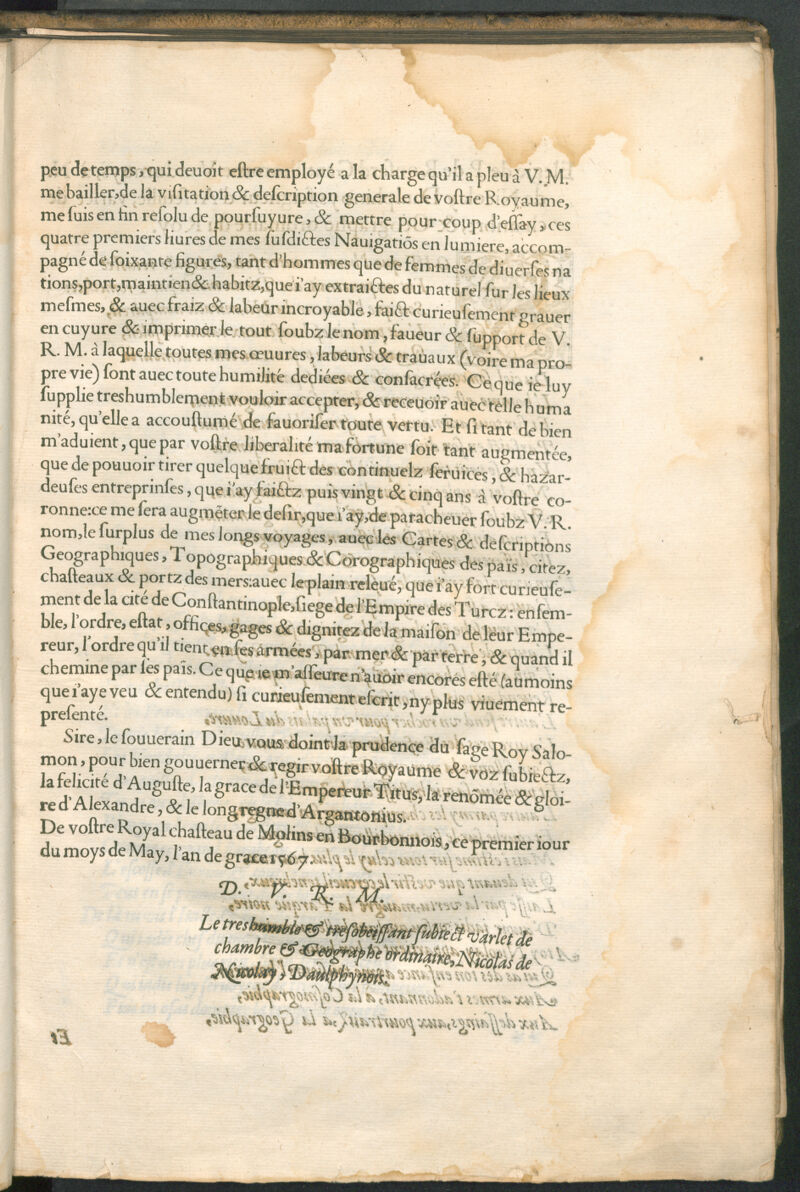 peu de temps, qui deuoit eſtre employé a la charge qu'il a pleu à V. M.
me bailler, de la viſitation & deſcription generale de voſtre Royaume,
me ſuis en fin reſolu de pourſuyure, & mettre pour coup d'eſſay, ces
quatre premiers liures de mes ſuſdictes Nauigatiõs en lumiere, accom-
pagné de ſoixante figures, tant d'hommes que de femmes de diuerſes na
tions, port, maintien & habitz, que i'ay extraictes du naturel ſur les lieux
meſmes, & auec fraiz & labeur incroyable, faict curieuſement grauer
en cuyure & imprimer le tout ſoubz le nom, faueur & ſupport de V.
R. M. à laquelle toutes mes œuures, labeurs & trauaux (voire ma pro-
pre vie) ſont auec toute humilité dediées & conſacrées. Ce que ie luy
ſupplie treshumblement vouloir accepter, & receuoir auec telle huma
nité, qu'elle a accouſtumé de fauoriſer toute vertu. Et ſi tant de bien
m'aduient, que par voſtre liberalité ma fortune ſoit tant augmentée,
que de pouuoir tirer quelque fruict des continuelz ſeruices, & hazar-
deuſes entreprinſes, que i'ay faictz puis vingt & cinq ans à voſtre co-
ronne: ce me ſera augmẽter le deſir, que i'ay, de paracheuer ſoubz V. R.
nom, le ſurplus de mes longs voyages, auec les Cartes & deſcriptions
Geographiques, Topographiques & Corographiques des païs, citez,
chaſteaux & portz des mers: auec le plain releué, que i'ay fort curieuſe-
ment de la cité de Conſtantinople, ſiege de l'Empire des Turcz: enſem-
ble, l'ordre, eſtat, offices, gages & dignitez de la maiſon de leur Empe-
reur, l'ordre qu'il tient en ſes armées, par mer & par terre, & quand il
chemine par ſes païs. Ce que ie m'aſſeure n'auoir encores eſté (aumoins
que i'aye veu & entendu) ſi curieuſement eſcrit, ny plus viuement re-
preſenté.
Sire, le ſouuerain Dieu vous doint la prudence du ſage Roy Salo-
mon, pour bien gouuerner & regir voſtre Royaume & voz ſubiectz,
la felicité d'Auguſte, la grace de l'Empereur Titus, la renõmée & gloi-
re d'Alexandre, & le long regne d'Argantonius.
De voſtre Royal chaſteau de Molins en Bourbonnois, ce premier iour
du moys de May, l'an de grace 1567.
D. V. R. M.
Le treshumble & treſobeiſſant ſubiect varlet de
chambre & Geographe ordinaire, Nicolas de
Nicolay, Daulphynois.